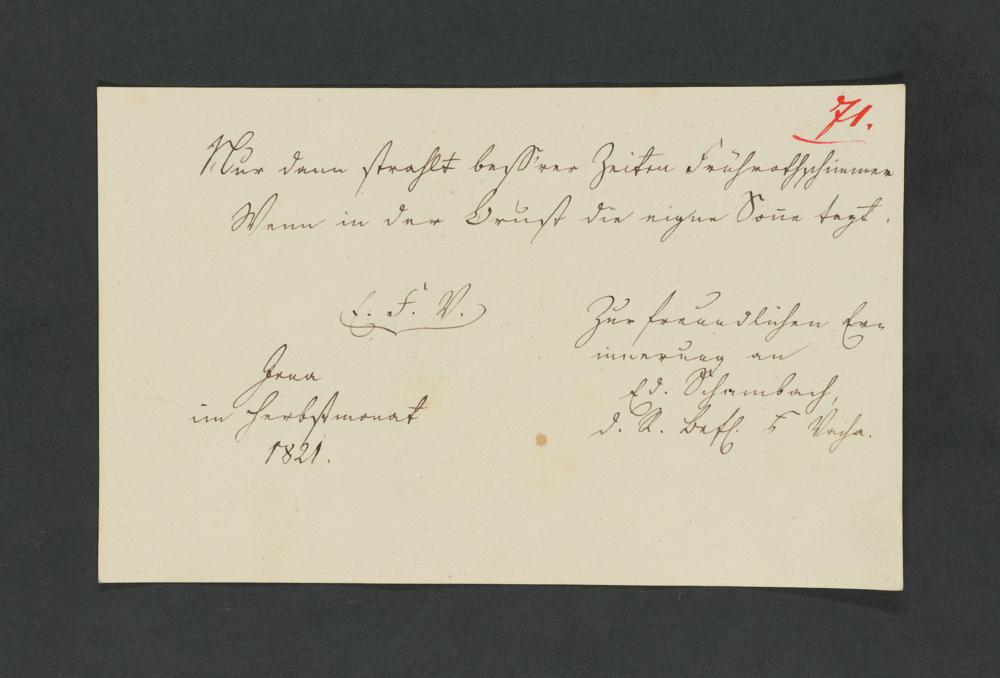 71.
Nur dann strahlt beß'rer Zeiten Frührothschimmer
Wenn in der Brust die eigne Soñe tagt.
E. F. V.
Zur freundlichen Er-
innerung an
Ed. Schambach,
d. R. Befl. Vacha.
Jena
im Herbstmonat
1821.